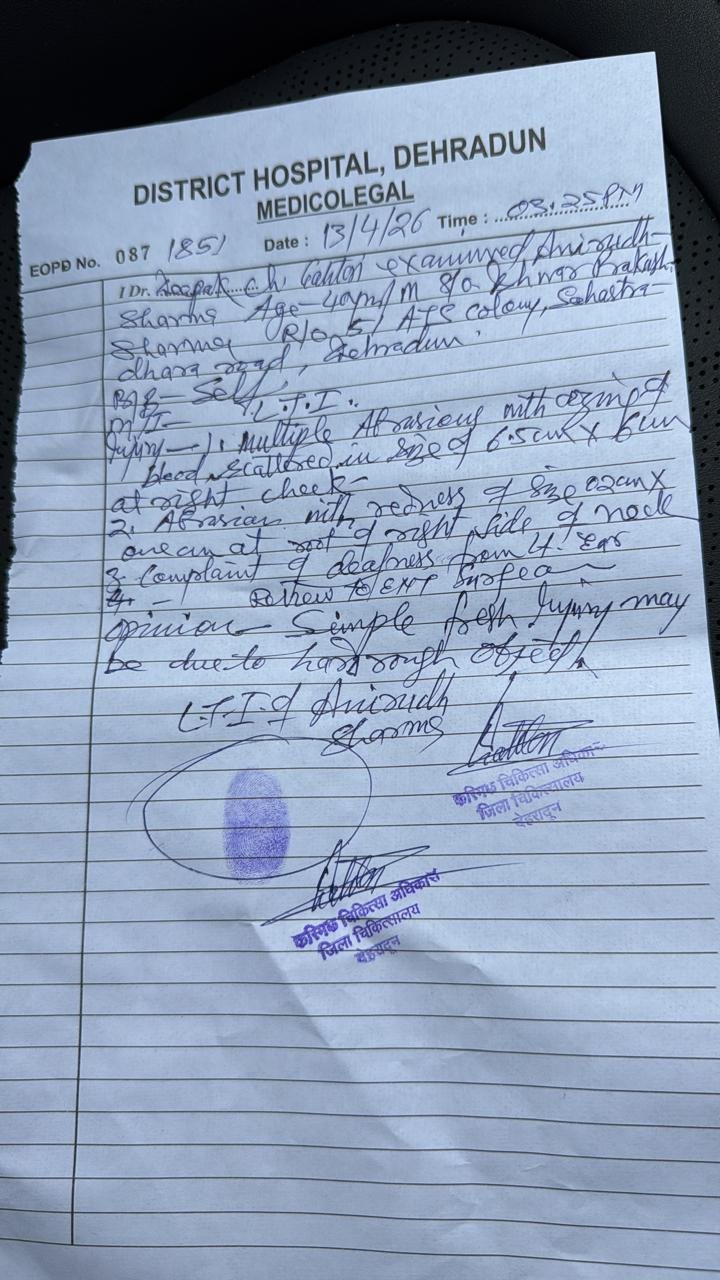 DISTRICT HOSPITAL, DEHRADUN
MEDICOLEGAL
EOPD No. 087 /851 Date : 13/4/26 Time : 03:25PM
I Dr. Deepak ch. examined Anirudh
Sharma Age- /M S/o Prakash
Sharma R/o 51 ATS colony, Sahastra-
dhara road, Dehradun.
B/B- Self
M/I- L.T.I.
Injury- 1. Multiple Abrasions with oozing of
blood, scattered in size of 6.5cm X 6cm
at right cheek
2. Abrasion with redness of size 02cm X
one cm at root of right side of neck
3. Complaint of deafness from Ear
to ENT Surgeon
opinion- Simple fresh Injury may
be due to hard rough object.
L.T.I of Anirudh
Sharma
चिकित्सा अधिकारी
जिला चिकित्सालय
देहरादून
चिकित्सा अधिकारी
जिला चिकित्सालय
देहरादून